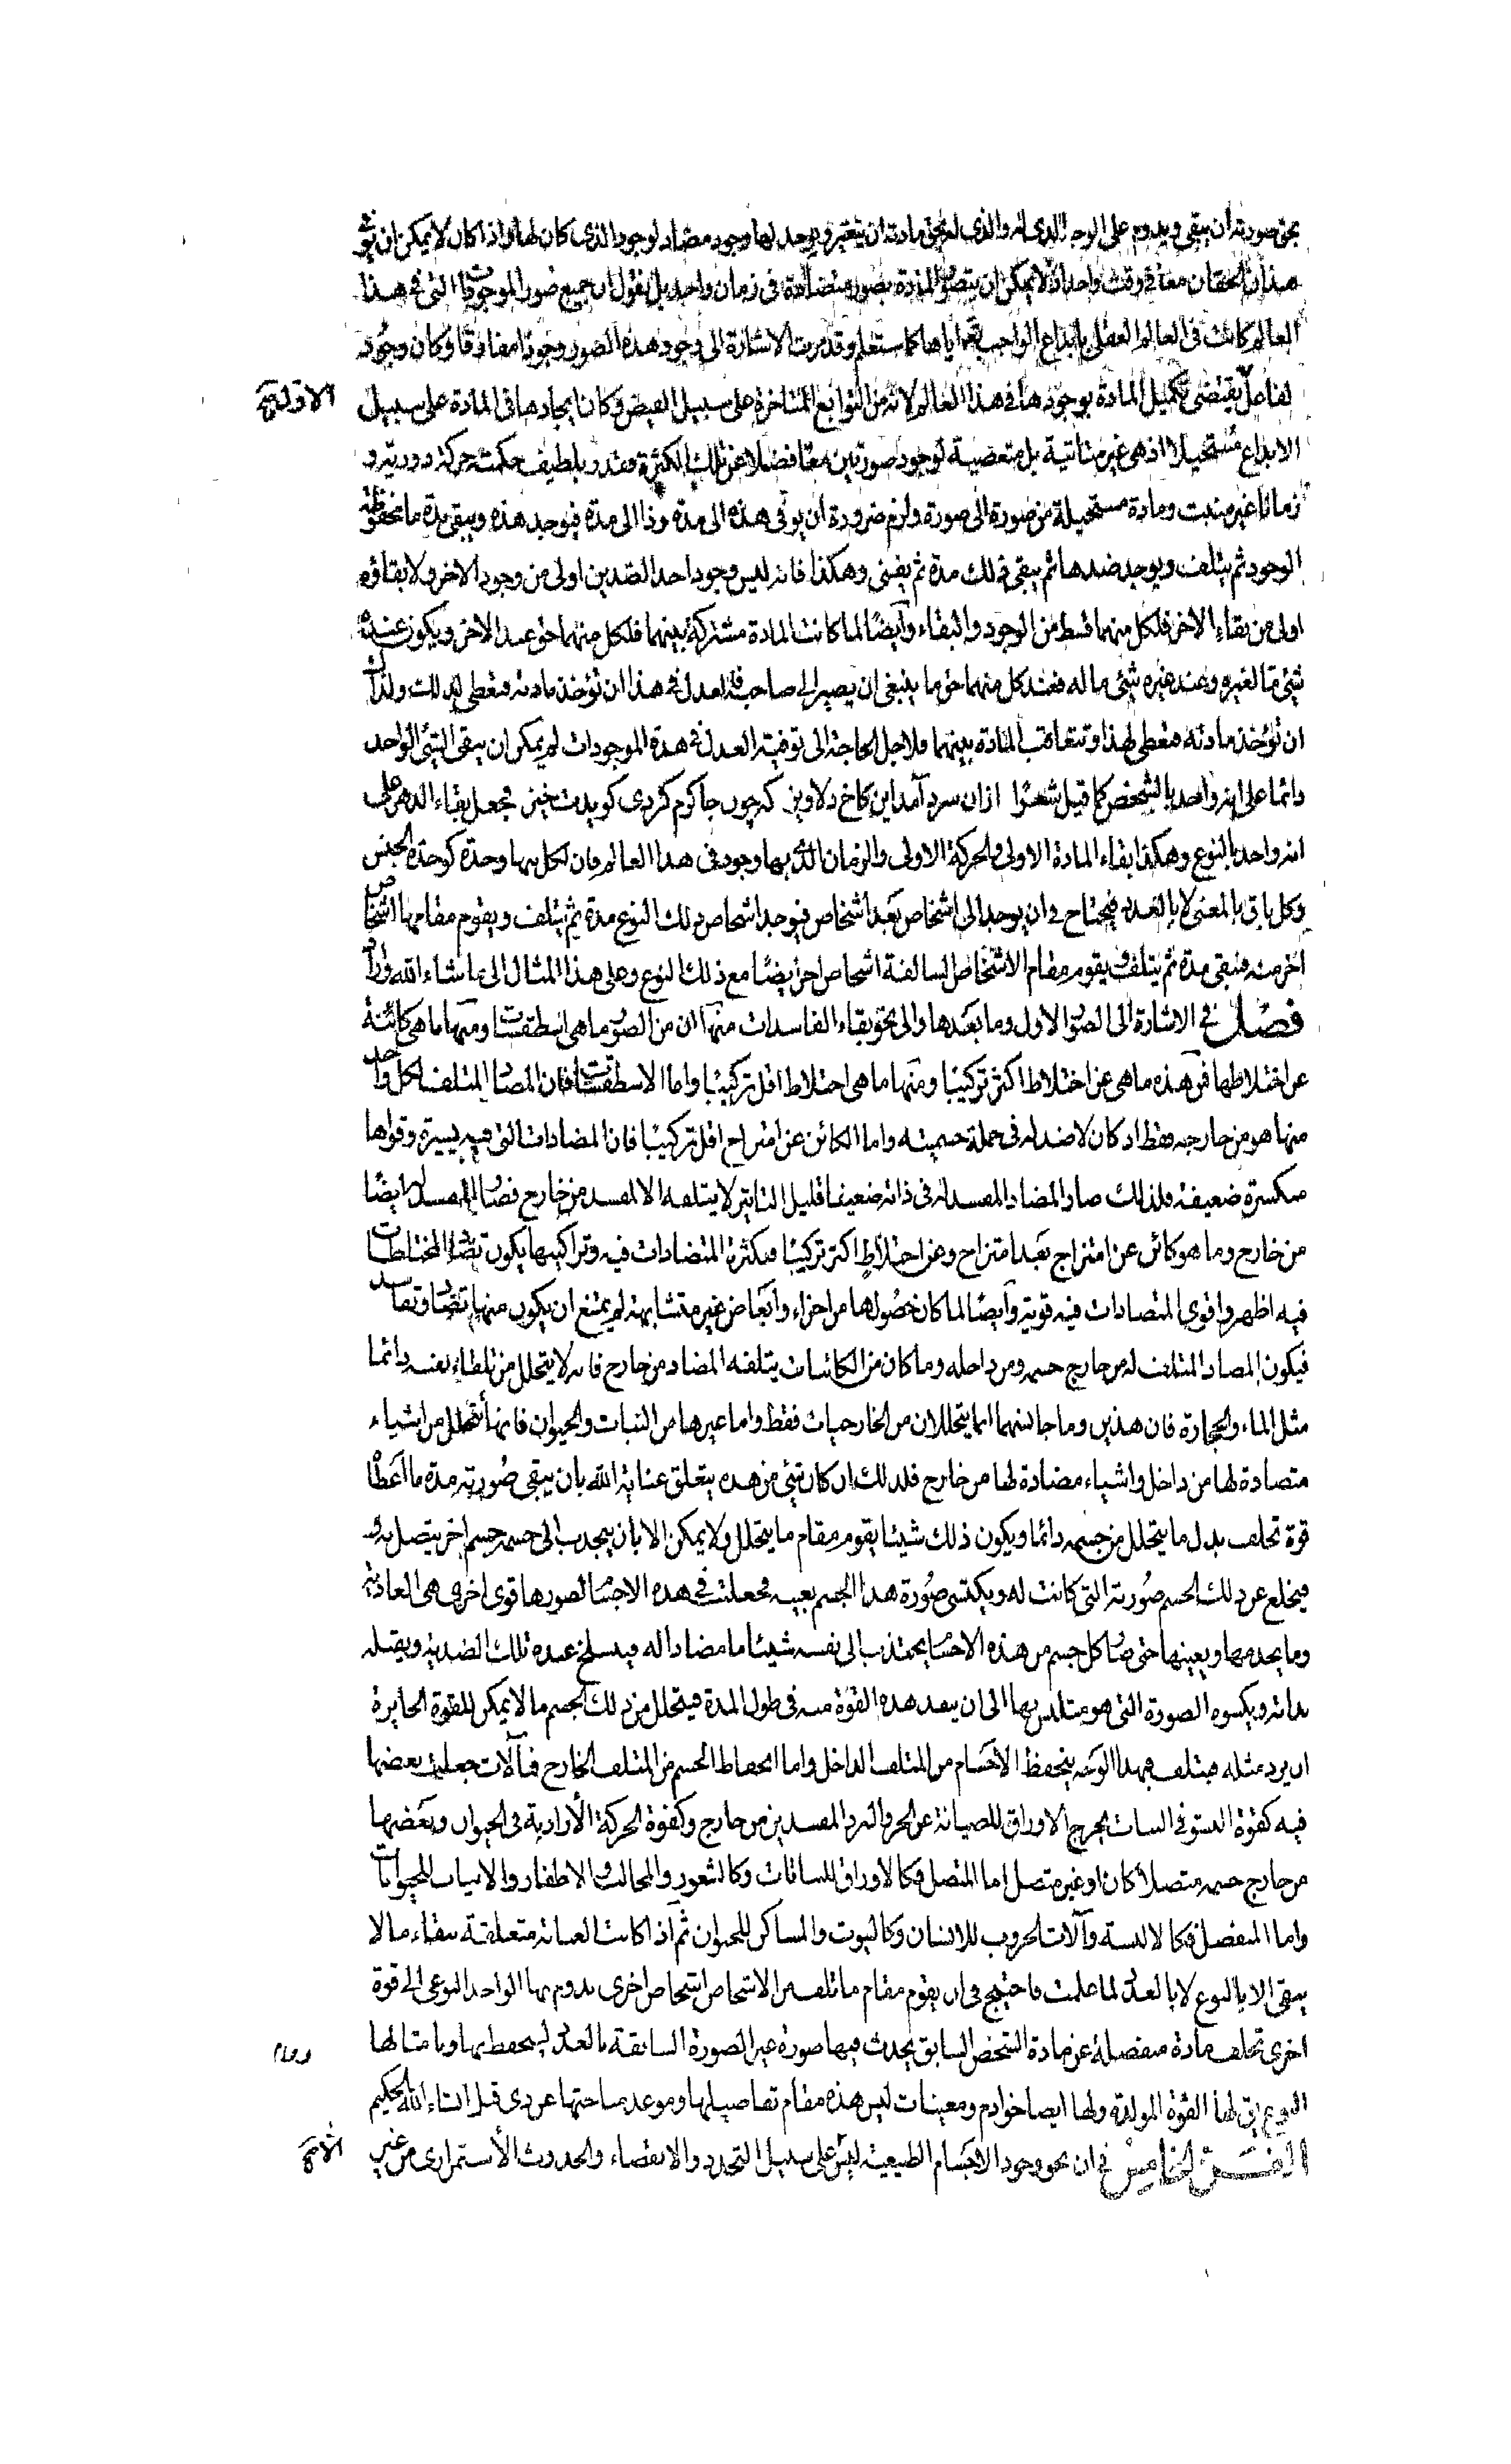 بحق صورته ان يبقى ويدوم على الوجه الذى له والذى له بحق مادته ان يتغير ويوجد لها وجود مضاد لوجود الذى كان لها واذا كان لا يمكن ان يوفى
هذان الحقان معا فى وقت واحد اذ لا يمكن ان يتصور المادة بصور متضادة فى زمان واحد بل نقول ان جميع صور الموجودات التى فى هذا
العالم كانت فى العالم العقلى بابداع الواجب تعالى اياها كما ستعلم وقد مرت الاشارة الى وجود هذه الصور وجودا مفارقا وكان وجود
لفاعل يقتضى تكميل المادة بوجودها فى هذا العالم لانه من التوابع المتاخرة على سبيل الفيض وكان ايجادها فى المادة على سبيل
الاولية
الابداع مستحيلا اذ هى غير متاتية بل متعصية لوجود صورتين معا فضلا عن تلك الكثرة فقدر بلطيف حكمته حركة دورية و
زمانا غير منبت ومادة مستحيلة من صورة الى صورة ولزم ضرورة ان يوفى هذه الى مدة وذا الى مدة فيوجد هذه ويبقى مدة ما محفوظة
الوجود ثم يتلف ويوجد ضدها ثم يبقى ذلك مدة ثم يفنى وهكذا فانه ليس وجود احد الضدين اولى من وجود الاخر ولا بقاؤه
اولى من بقاء الاخر فلكل منهما قسط من الوجود والبقاء وايضا لما كانت المادة مشتركة بينهما فلكل منهما حق عند الاخر ويكون عنده
شئ مما لغيره وعند غيره شئ ما له فعند كل منهما حق ما ينبغى ان يصير الى صاحبه فالعدل فى هذا ان تؤخذ مادته فتعطى لذلك ولذلك
ان تؤخذ مادته فتعطى لهذا وتتعاقب المادة بينهما فلاجل الحاجة الى توفية العدل فى هذه الموجودات لم يمكن ان يبقى الشئ الواحد
دائما على انه واحد بالشخص كما قيل شعرا ازان سرد آمد اين كاخ دلاويز كه چون جا گرم كردى گويدت خيز فجعل بقاء الدهر على
انه واحد بالنوع وهكذا بقاء المادة الاولى والحركة الاولى والزمان الذى بها وجود فى هذا العالم فان لكل منها وحدة كوحدة الجنس
وكل باق بالمعنى لا بالعدد فيحتاج فى ان يوجد الى اشخاص بعد اشخاص فيوجد اشخاص ذلك النوع مدة ثم يتلف ويقوم مقامها اشخاص
اخر منه فيبقى مدة ثم يتلف ويقوم مقام الاشخاص السالفة اشخاص اخر ايضا مع ذلك النوع وعلى هذا المثال الى ما شاء الله واراد
فصل فى الاشارة الى الصور الاول وما بعدها والى نحو بقاء الفاسدات منها ان من الصور ما هى اسطقسات ومنها ما هى كائنة
عن اختلاطها فمن هذه ما هى عن اختلاط اكثر تركيبا ومنها ما هى اختلاط اقل تركيبا واما الاسطقسات فان المضاد المتلف لكل واحد
منها هو من خارجه فقط اذ كان لا ضد له فى جملة جسميته واما الكائن عن امتزاج اقل تركيبا فان المضادات التى فيه يسيرة وقواها
منكسرة ضعيفة فلذلك صار المضاد المفسد له فى ذاته ضعيفا قليل التاثير لا يتلفه الا المفسد من خارج فصار المفسد له ايضا
من خارج وما هو كائن عن امتزاج بعد امتزاج وعن اختلاط اكثر تركيبا فبكثرة المتضادات فيه وتراكيبها يكون تضاد المختلطات
فيه اظهر واقوى المتضادات فيه قوية وايضا لما كان حصولها من اجزاء وابعاض غير متشابهة لم يمتنع ان يكون منها تضاد وتفاسد
فيكون المضاد المتلف له من خارج جسمه ومن داخله وما كان من الكائنات يتلفه المضاد من خارج فانه لا يتحلل من تلقاء نفسه دائما
مثل الماء والحجارة فان هذين وما جانسهما انما يتحللان من الخارجيات فقط واما غيرها من النبات والحيوان فانها يتحلل من اشياء
متضادة لها من داخل واشياء مضادة لها من خارج فلذلك ان كان شئ من هذه يتعلق عناية الله بان يبقى صورته مدة ما اعطاه
قوة تخلف بدل ما يتحلل من جسمه دائما ويكون ذلك شيئا يقوم مقام ما يتحلل ولا يمكن الا بان ينجذب الى جسمه جسم اخر يتصل به
فيخلع عن ذلك الجسم صورته التى كانت له ويكتسى صورة هذا الجسم بعينه فجعلت فى هذه الاجسام لصورها قوى اخرى هى الغاذية
وما يخدمها ويعينها حتى صار كل جسم من هذه الاجسام يجتذب الى نفسه شيئا ما مضادا له فينسلخ عنده تلك الضدية ويقبله
بذاته ويكسوه الصورة التى هو متلبس بها الى ان ينفد هذه القوة منه فى طول المدة فيتحلل من ذلك الجسم ما لا يمكن للقوة الجابرة
ان يرد مثله فيتلف فبهذا الوجه ينحفظ الاجسام من المتلف الداخل واما انحفاظ الجسم من المتلف الخارج فبآلات جعلت بعضها
فيه كقوة النمو فى النبات يخرج الاوراق للصيانة عن الحر والبرد المفسدين من خارج وكقوة الحركة الارادية فى الحيوان وبعضها
من خارج جسمه متصلا كان او غير متصل اما المتصل فكالاوراق للنباتات وكالشعور والمخالب والاظفار والانياب للحيوانات
واما المنفصل فكالالبسة وآلات الحروب للانسان وكالبيوت والمساكن للحيوان ثم اذا كانت العناية متعلقة ببقاء ما لا
يبقى الا بالنوع لا بالعدد لما علمت فاحتيج فى ان يقوم مقام ما تلف من الاشخاص اشخاص اخرى يدوم بها الواحد النوعى الى قوة
اخرى تخلف مادة منفصلة عن مادة الشخص السابق يحدث فيها صورة غير الصورة السابقة بالعدد لينحفظ بها وبامثالها
النوع يق لها القوة المولدة ولها ايضا خوادم ومعينات ليس هذه مقام تفاصيلها وموعد مباحثها عن ذى قبل انشاء الله الحكيم
الفن الخامس فى ان نحو وجود الاجسام الطبيعية ليس على سبيل التجدد والانقضاء والحدوث الاستمرارى من غير